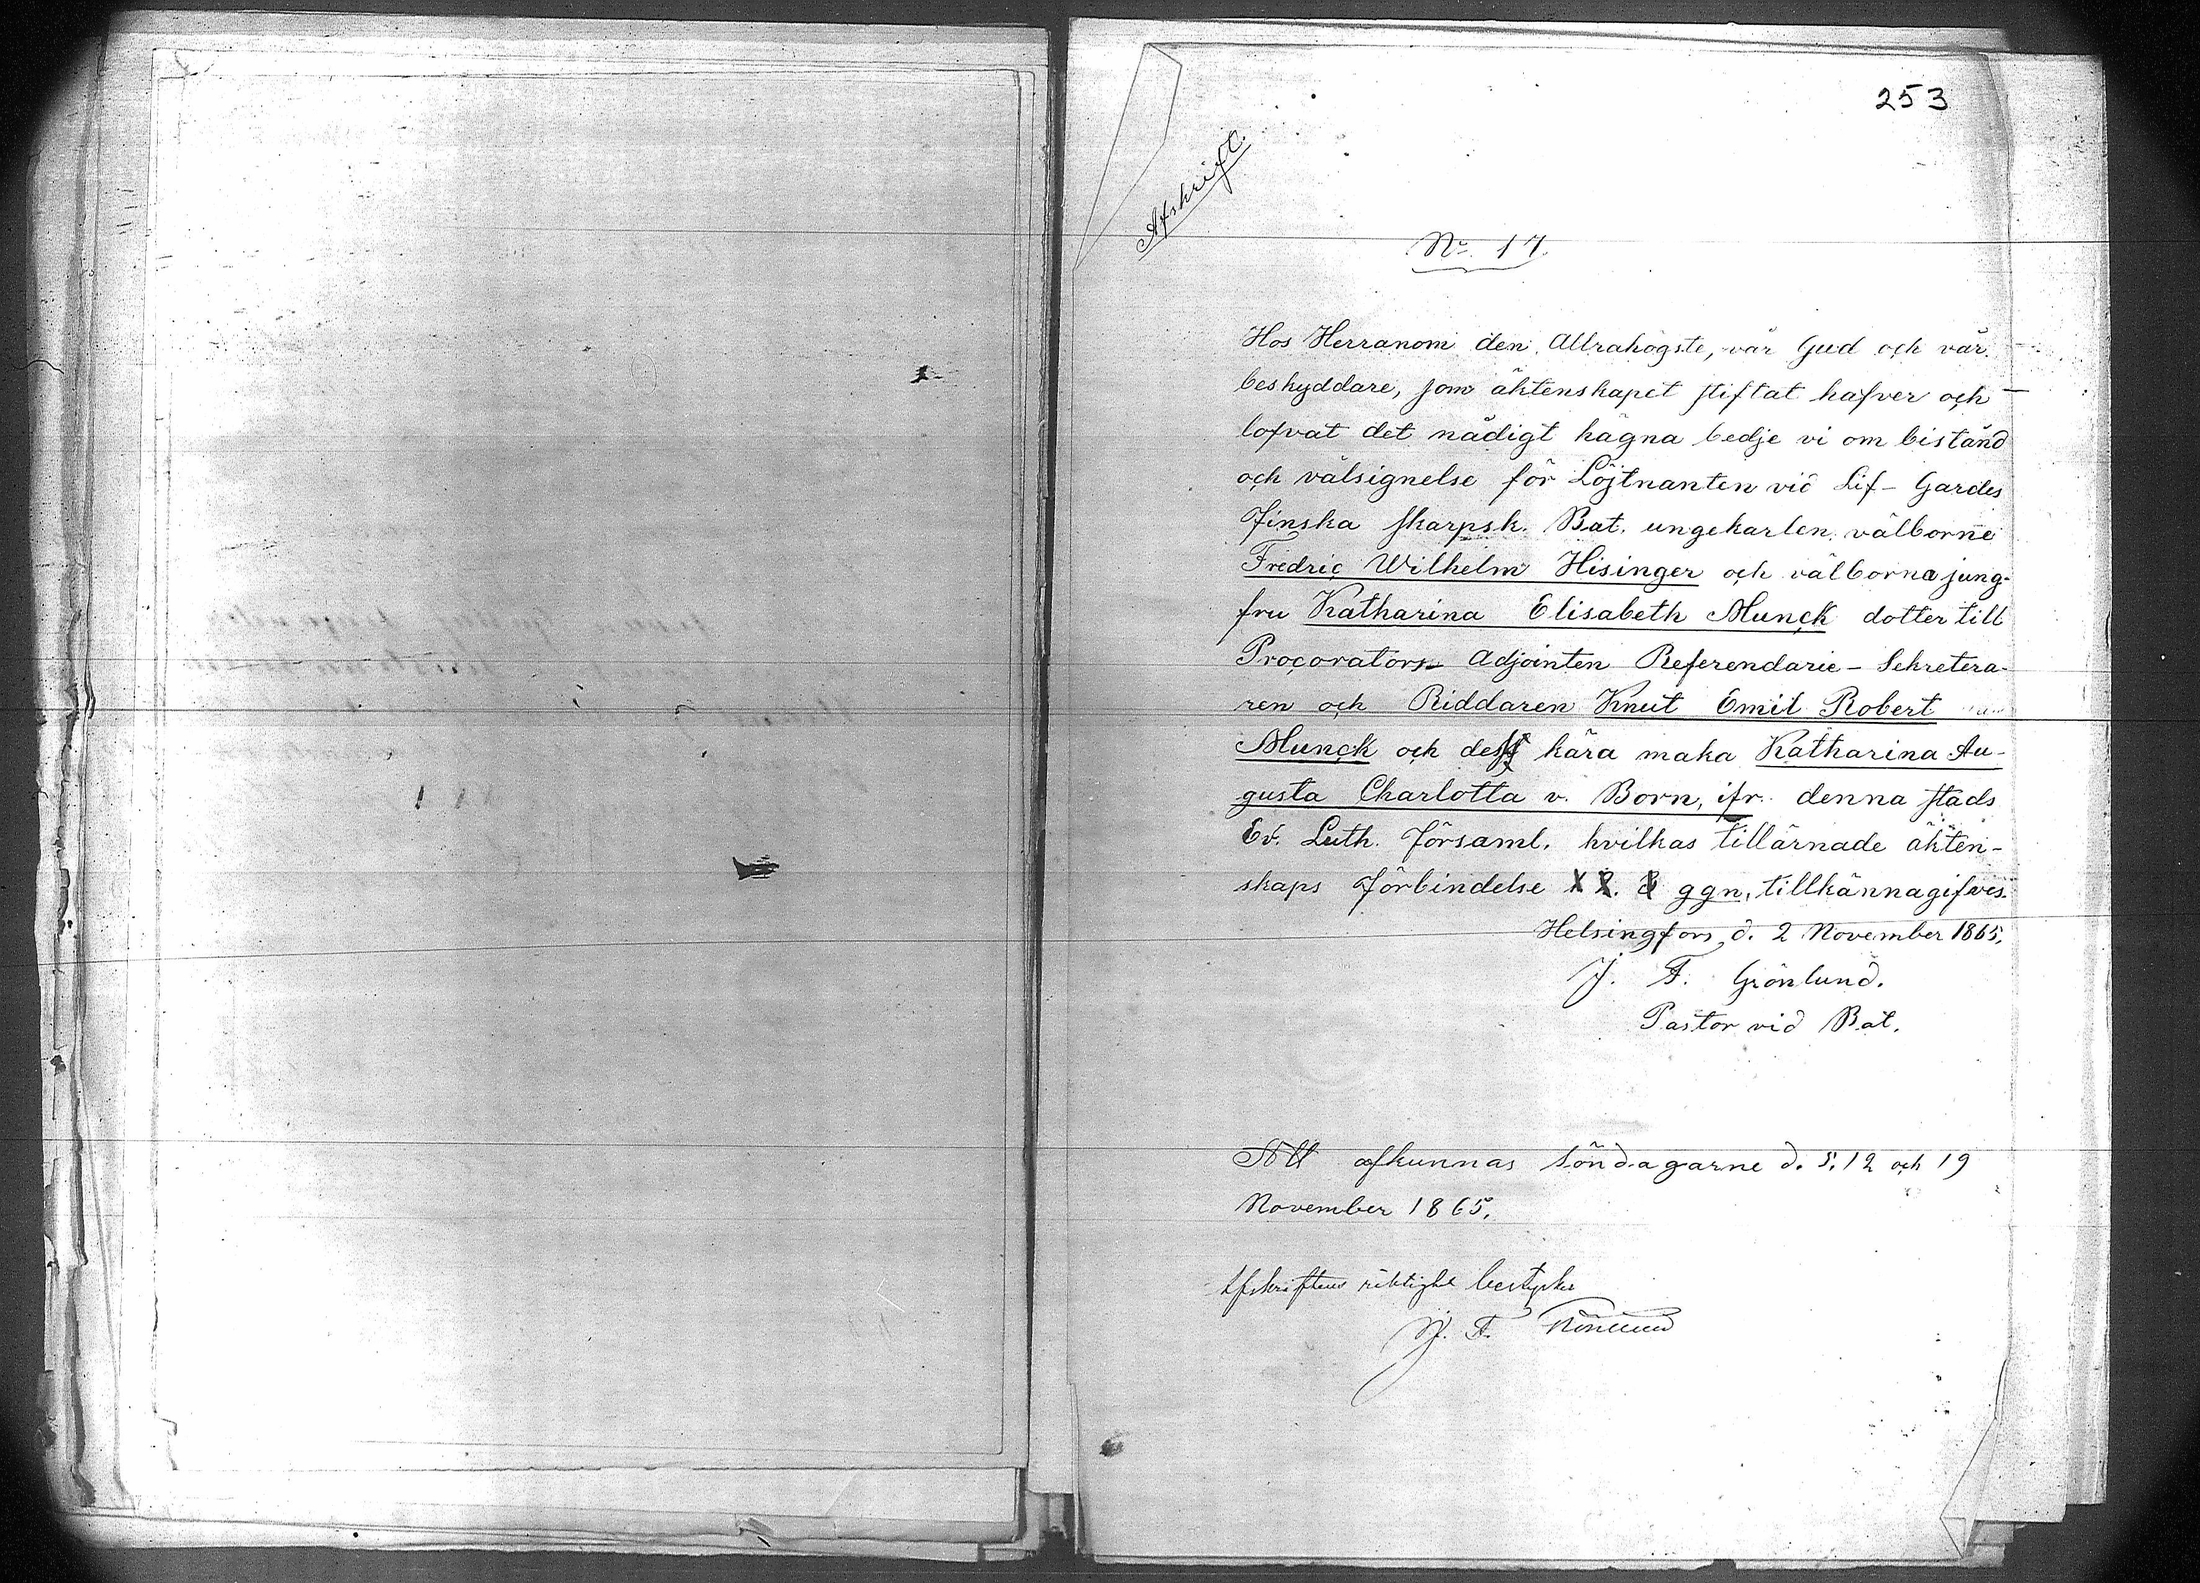 253
Afskrift.
No. 17.
Hos Herranom den Allrahögste, vår Gud och vår
beskyddare, som äktenskapet stiftat hafver och
lofvat det nådigt hägna bedje vi om bistånd
och välsignelse för Löjtnanten vid Lif-Gardes
Finska skarpsk. Bat. ungekarlen välborne
Fredric Wilhelm Hisinger och välborna jung-
fru Katharina Elisabeth Munck dotter till
Procorators Adjointen Referendarie-Sekretera-
ren och Riddaren Knut Emil Robert
Munck och dess kära maka Katharina Au-
gusta Charlotta v. Born, ifr. denna stads
Ev. Luth. Församl. hvilkas tillärnade äkten-
skaps förbindelse 1 2. 3 ggn, tillkännagifves.
Helsingfors, d. 2 November 1865.
J. F. Grönlund.
Pastor vid Bat.
Att afkunnas Söndagarne d. 5. 12 och 19
November 1865.
Afskriftens riktighet bestyrker
J. F. Grönlund